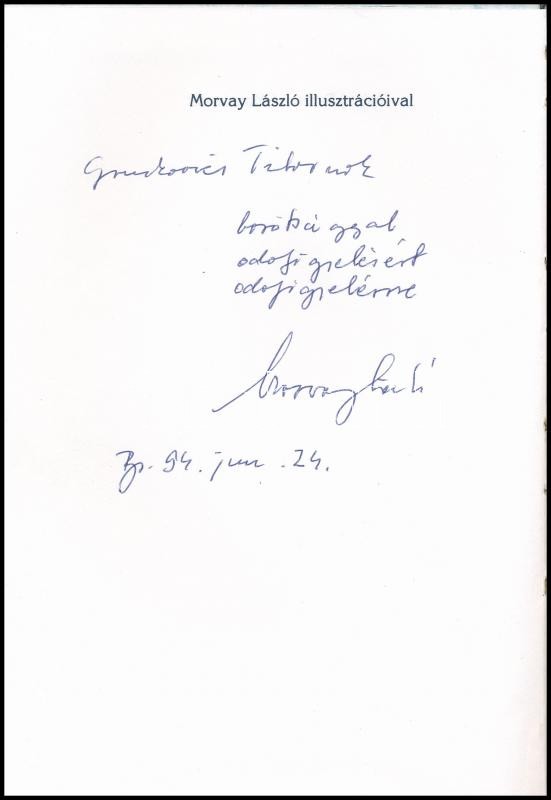 Morvay László illusztrációival
Tibornak
barátsággal
odafigyelésért
odafigyelésre
Morvay László
Bp. 94. jun. 24.